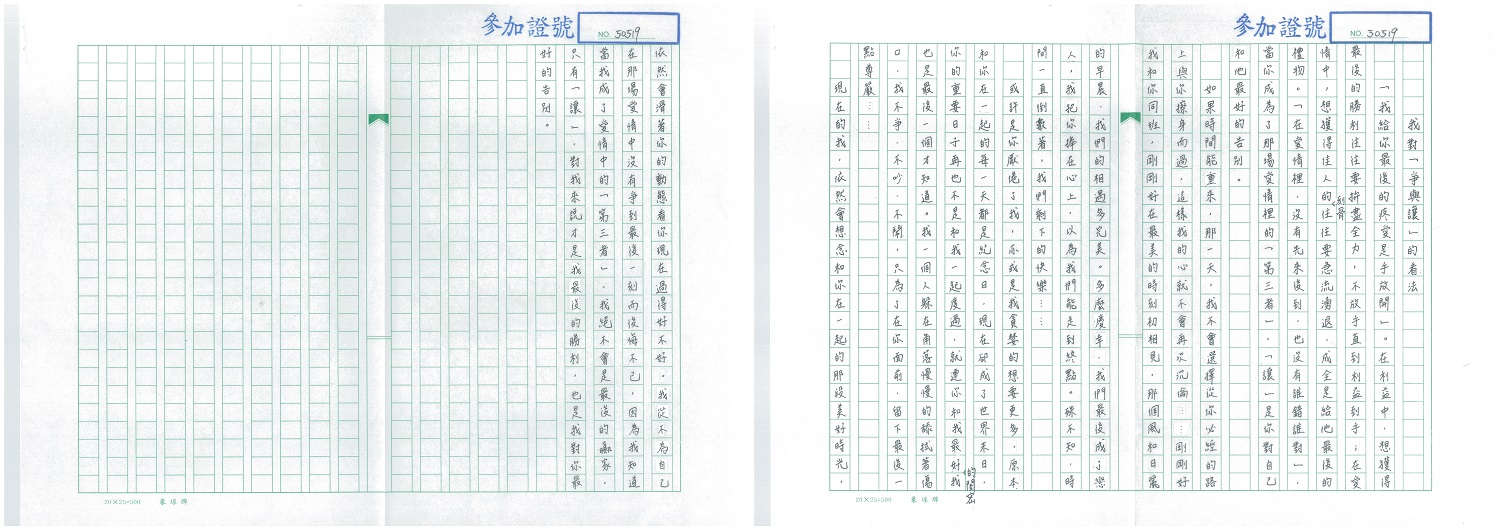 參加證號
NO. 30519
我對「爭與讓」的看法
「我給你最後的疼愛是手放開」。在利益中，想獲得
最後的勝利往往要拚盡全力，不放手直到利益到手；在愛
情中，想獲得佳人的刻骨往往要急流湧退，成全是給他最後的
禮物。「在愛情裡，沒有先來後到，也沒有誰錯誰對」，
當你成為了那場愛情裡的「第三者」，「讓」是你對自己
和他最好的告別。
如果時間能重來，那一天，我不會選擇從你必經的路
上與你擦身而過，這樣我的心就不會再次沉淪……剛剛好
我和你同班，剛剛好在最美的時刻初相見，那個風和日麗
的早晨，我們的相遇多完美。多麼慶幸，我們最後成了戀
人，我把你捧在心上，以為我們能走到終點。殊不知，時
間一直倒數著，我們剩下的快樂……
或許是你厭倦了我，亦或是我貪婪的想要更多，原本
和你在一起的每一天都是紀念日，現在卻成了世界末日，
你的重要日子再也不是和我一起度過，就連你和我最好的閨密我
也是最後一個才知道。我一個人躲在角落慢慢的舔拭著傷
口，我不爭、不吵、不鬧，只為了在你面前，留下最後一
點尊嚴……
現在的我，依然會想念和你在一起的那段美好時光，
20×25=500 東球牌
參加證號
NO. 30519
依然會滑著你的動態看你現在過得好不好。我從不為自己
在那場愛情中沒有爭到最後一刻而後悔不已，因為我知道
當我成了愛情中的「第三者」，我絕不會是最後的贏家，
只有「讓」，對我來說才是我最後的勝利，也是我對你最
好的告別。
20×25=500 東球牌